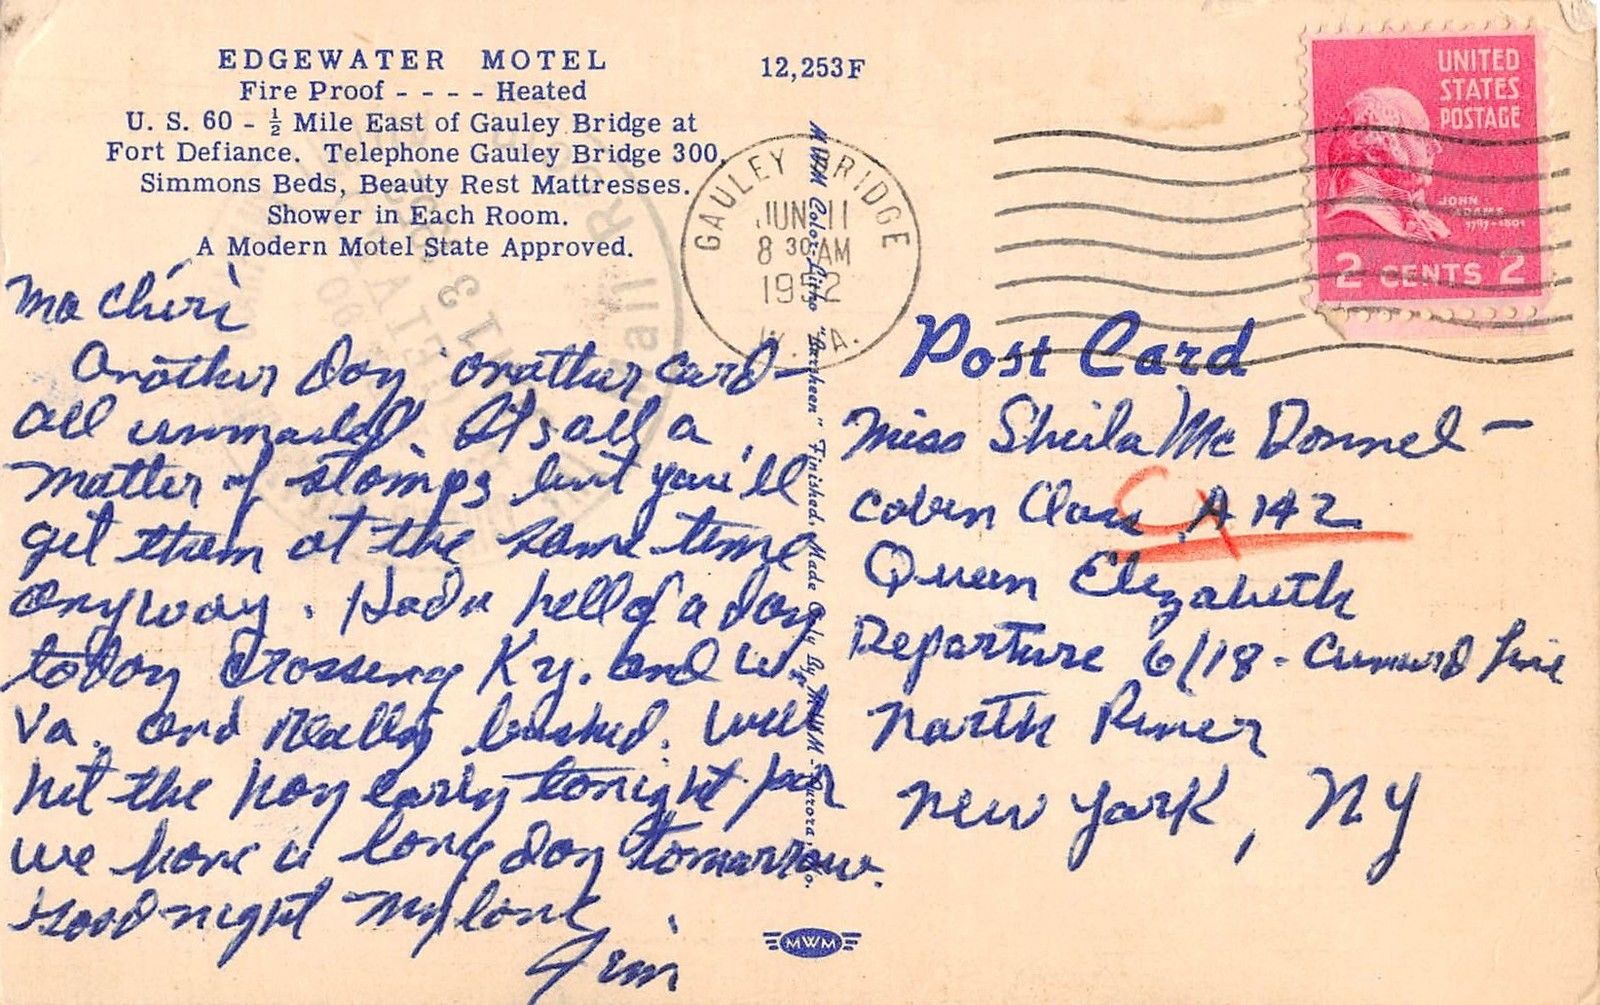 EDGEWATER MOTEL
Fire Proof - - - - Heated
U. S. 60 - ½ Mile East of Gauley Bridge at
Fort Defiance. Telephone Gauley Bridge 300.
Simmons Beds, Beauty Rest Mattresses.
Shower in Each Room.
A Modern Motel State Approved.
12,253F
GAULEY BRIDGE
JUN 11
8 30 AM
1952
W. VA.
UNITED
STATES
POSTAGE
JOHN
ADAMS
1797-1801
2 CENTS 2
Ma Chéri
Another Day another card -
all unmailed. It's all a
matter of stamps but you'll
get them at the same time
anyway. Had a hell of a day
today crossing Ky. and W.
Va. and really bushed. Will
hit the hay early tonight for
we have a long day tomorrow.
Good night my love
Jim
MWM Color-Litho "Larcheen" Finished. Made Only By MWM - Aurora, Mo.
Post Card
Miss Sheila McDonnel -
Cabin Class A 142
Queen Elizabeth
Departure 6/18 - Cunnard Line
North River
New York, NY
MWM